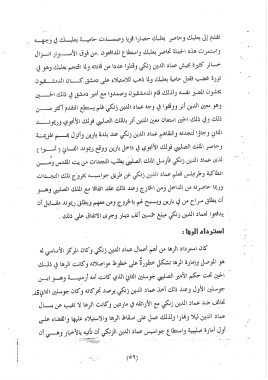 تقدم إلى بعلبك وحاصر بعلبك حصارا قويا وصمدت حامية بعلبك في وجهه
واستمرت هذه الحملة تحاصر بعلبك واستطاع المدافعون من فوق الأسوار انزال
خسائر كثيرة بجيش عماد الدين زنكي وقتلوا عددا من قادته ولما اقتحم بعلبك وهو في
ثورة غضب فقتل حامية بعلبك ولما ذهب للاستيلاء على دمشق كان الدمشقيون
الدمشقيون وصمدوا مع أمير دمشق في ذلك الحين
وهو معين الدين أنر ووقفوا في وجه عماد الدين زنكي فلم يستطع التقدم أكثر من
ذلك وفي ذلك الحين استعان معين الدين أنر بالملك الصليبي فولك الأنجوي، وريموند
الثاني وجاؤا لنجدته والتقاهم عماد الدين زنكي عند بلدة بارين وأنزل بهم الهزيمة
وحاصر الملك الصليبي فولك الأنجوي في داخل بارين ووقع ريموند الثاني ( أسيرا )
لدى عماد الدين زنكي فأرسل الملك الصليبي يطلب النجدات من بيت المقدس ومن
انطاكية وطرابلس فعلم عماد الدين زنكي عن طريق جواسيسه بخروج تلك النجدات
محاصرته من الداخل ومن الخارج وعند ذلك عقد اتفاقا مع الملك الصليبي وهو
أن يطلق سراح من في بارين ويسمح لهم بالخروج ومن معهم ويطلق ريموند مقابل أن
يدفعوا لعماد الدين زنكي مبلغ خمسين ألف دينار وجرى الاتفاق على ذلك .
استرداد الرها :
كان استرداد الرها من أهم أعمال عماد الدين زنكي وكان المركز الأساسي له
هو الموصل وإمارة الرها تشكل خطورة على خطوط مواصلاته وكانت الرها في ذلك
الحين تحت حكم الأمير الصليبي جوسلين الثاني الذي كانت أمه أرمنية وهو ابن
جوسلين الأول وعند ذلك أخذ عماد الدين زنكي يرصد تحركاته وكان جوسلين الثاني قد
تحالف ضد عماد الدين زنكي مع الأراتقة في ماردين وكانت الرها لا تغيب عن بال
عماد الدين ليلا ونهارا ولذلك عمل على اسقاط الرها والاستيلاء عليها والقضاء على
أول امارة صليبية واستطاع جواسيس عماد الدين الزنكي أن تأتيه بالأخبار وهي أن
(٥٩)